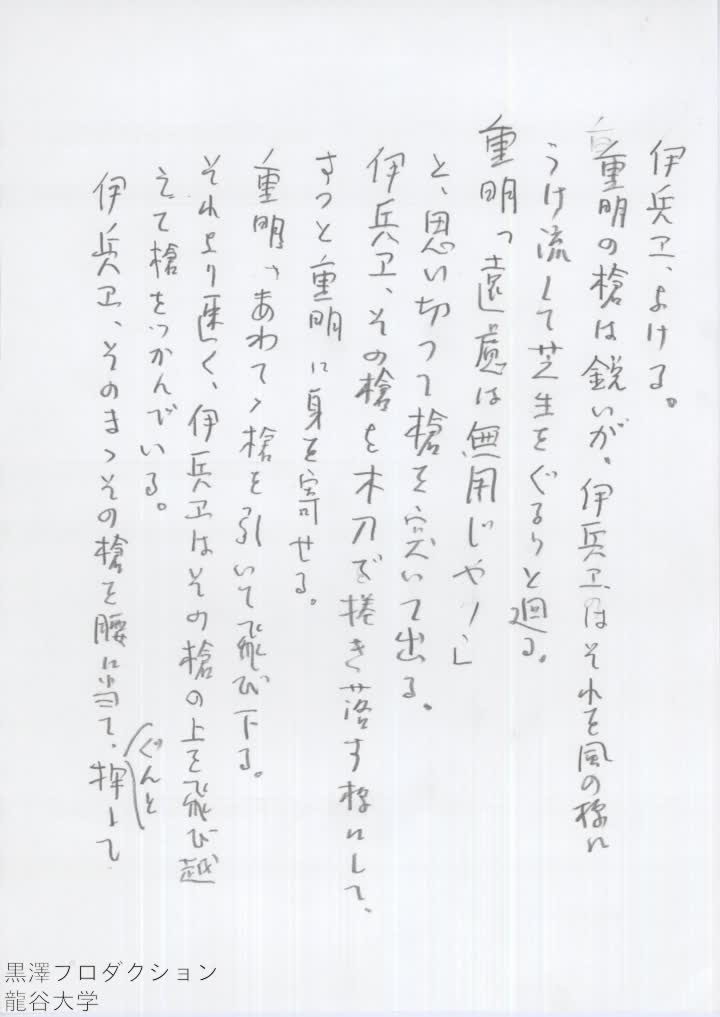 伊兵ヱ、よける。
重明の槍は鋭いが、伊兵ヱはそれを風の様に
うけ流して芝生をぐるりと廻る。
重明「遠慮は無用じや！」
と、思い切つて槍を突いて出る。
伊兵ヱ、その槍を木刀で捲き落す様にして、
すつと重明に身を寄せる。
重明、あわてゝ槍を引いて飛び下る。
それより速く、伊兵ヱはその槍の上を飛び越
えて槍をつかんでいる。
伊兵ヱ、そのまゝその槍を腰に当て、押して
ぐんと
黒澤プロダクション
龍谷大学